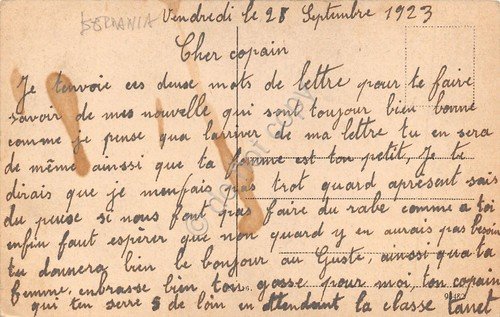 GERMANIA
Vendredi le 28 Septembre 1923
Cher copain
Je tenvoie ces deuse mots de lettre pour te faire
savoir de mes nouvelle qui sont toujour bien bonne
comme je pense qua larriver de ma lettre tu en sera
de même ainssi que ta femme est ton petit, Je te
dirais que je menfais pas trot quard apresent sais
du peuse si nous font pas faire du rabe comme a toi
enfin faut espèrer que non quard y en aurais pas besoin
tu donnera bien le bonjour au Guste, ainssi qua ta
femme, enbrasse bien ton gosse pour moi, ton copain
qui ten serre 5 de loin en attendant la classe